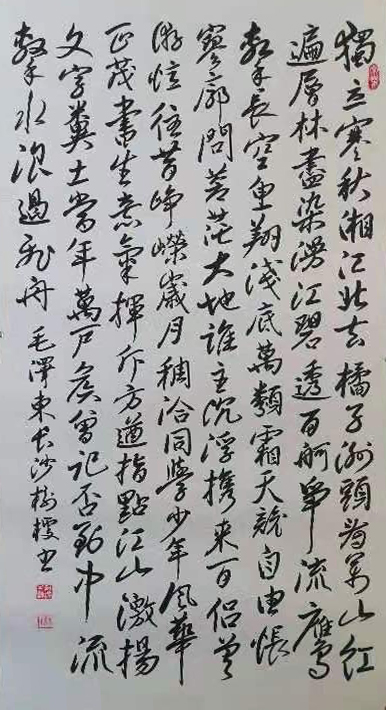 獨立寒秋湘江北去橘子洲頭看萬山紅
遍層林盡染漫江碧透百舸爭流鷹
擊長空魚翔淺底萬類霜天競自由悵
寥廓問蒼茫大地誰主沉浮攜來百侶曾
游憶往昔崢嶸歲月稠恰同學少年風華
正茂書生意氣揮斥方遒指點江山激揚
文字糞土當年萬戶侯曾記否到中流
擊水浪遏飛舟 毛澤東長沙 樹書